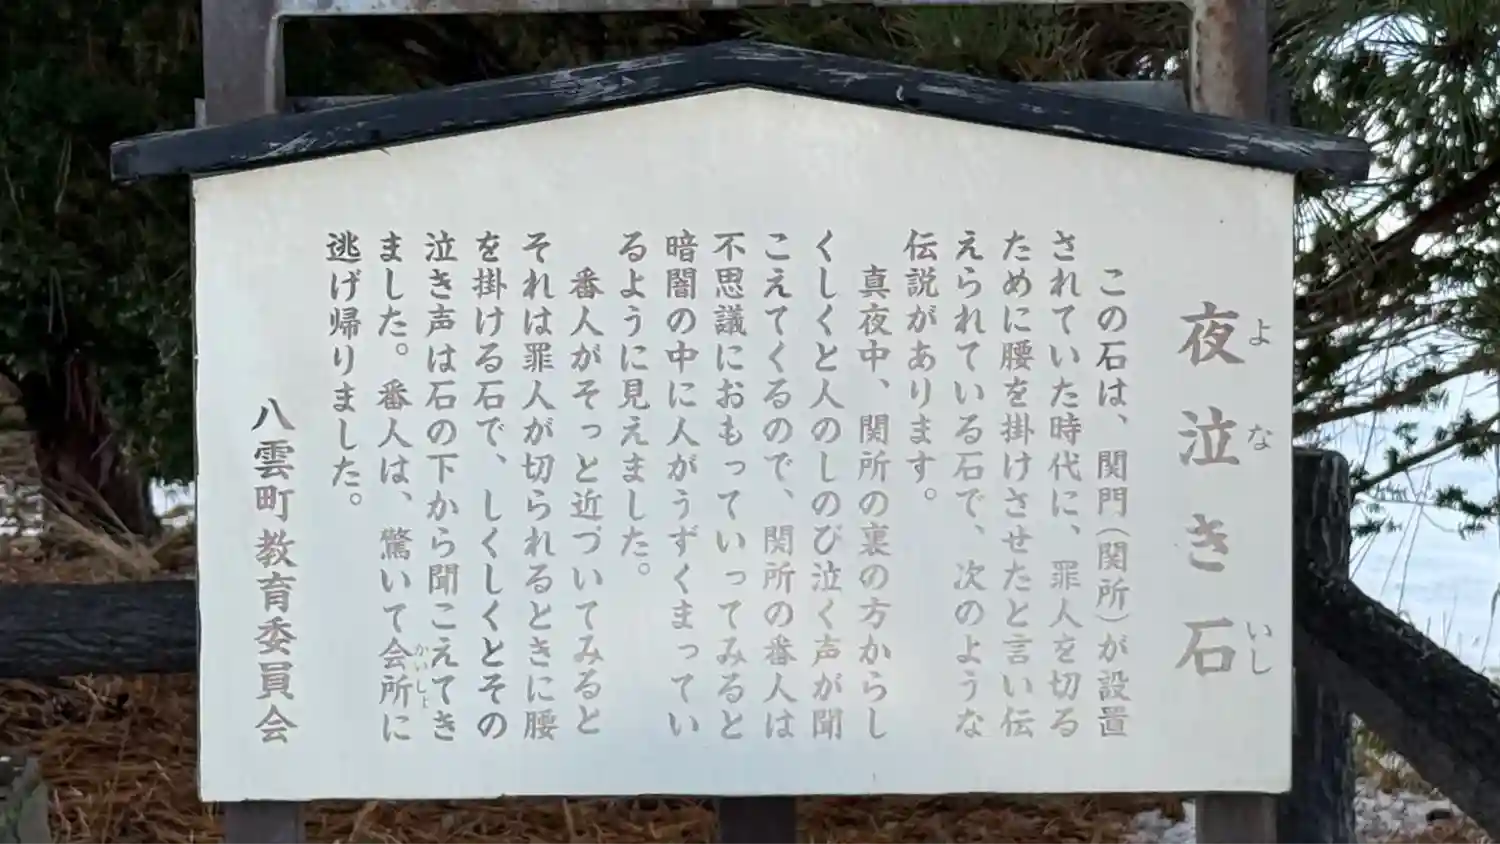 夜泣き石
よな いし
この石は、関門(関所)が設置
されていた時代に、罪人を切る
ために腰を掛けさせたと言い伝
えられている石で、次のような
伝説があります。
真夜中、関所の裏の方からし
くしくと人のしのび泣く声が聞
こえてくるので、関所の番人は
不思議におもっていってみると
暗闇の中に人がうずくまってい
るように見えました。
番人がそっと近づいてみると
それは罪人が切られるときに腰
を掛ける石で、しくしくとその
泣き声は石の下から聞こえてき
ました。番人は、驚いて会所に
かいしょ
逃げ帰りました。
八雲町教育委員会